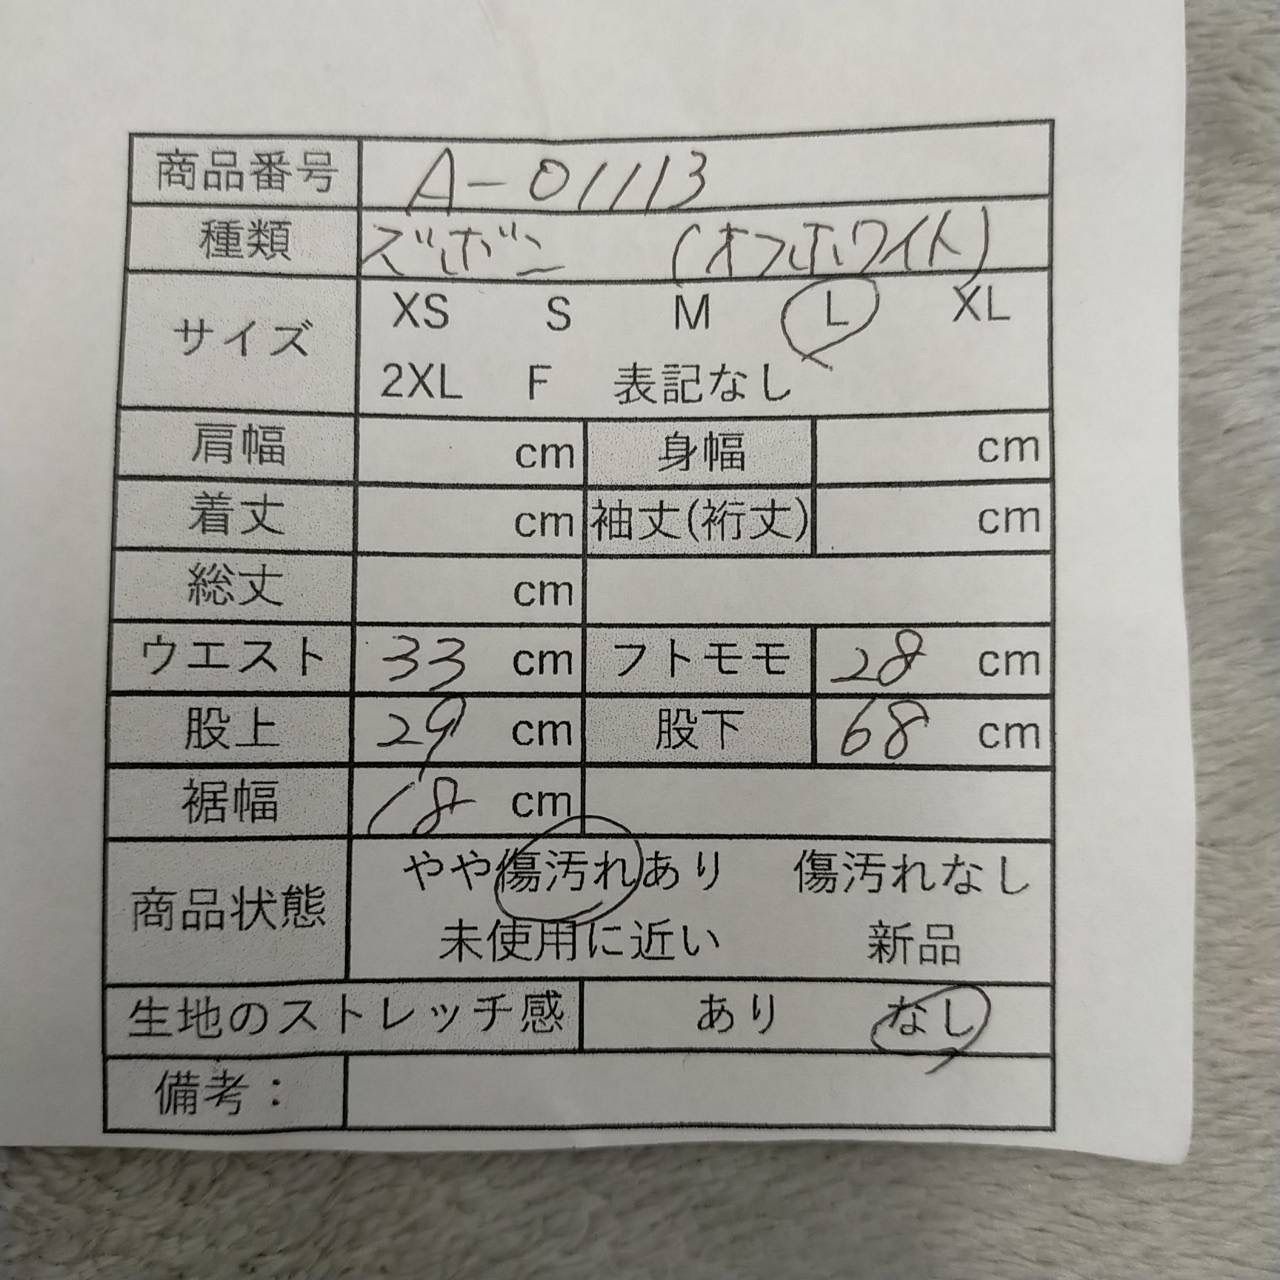 商品番号 A-01113
種類 ズボン (オフホワイト)
サイズ XS S M L XL
2XL F 表記なし
肩幅 cm 身幅 cm
着丈 cm 袖丈(裄丈) cm
総丈 cm
ウエスト 33 cm フトモモ 28 cm
股上 29 cm 股下 68 cm
裾幅 18 cm
商品状態 やや傷汚れあり 傷汚れなし
未使用に近い 新品
生地のストレッチ感 あり なし
備考：